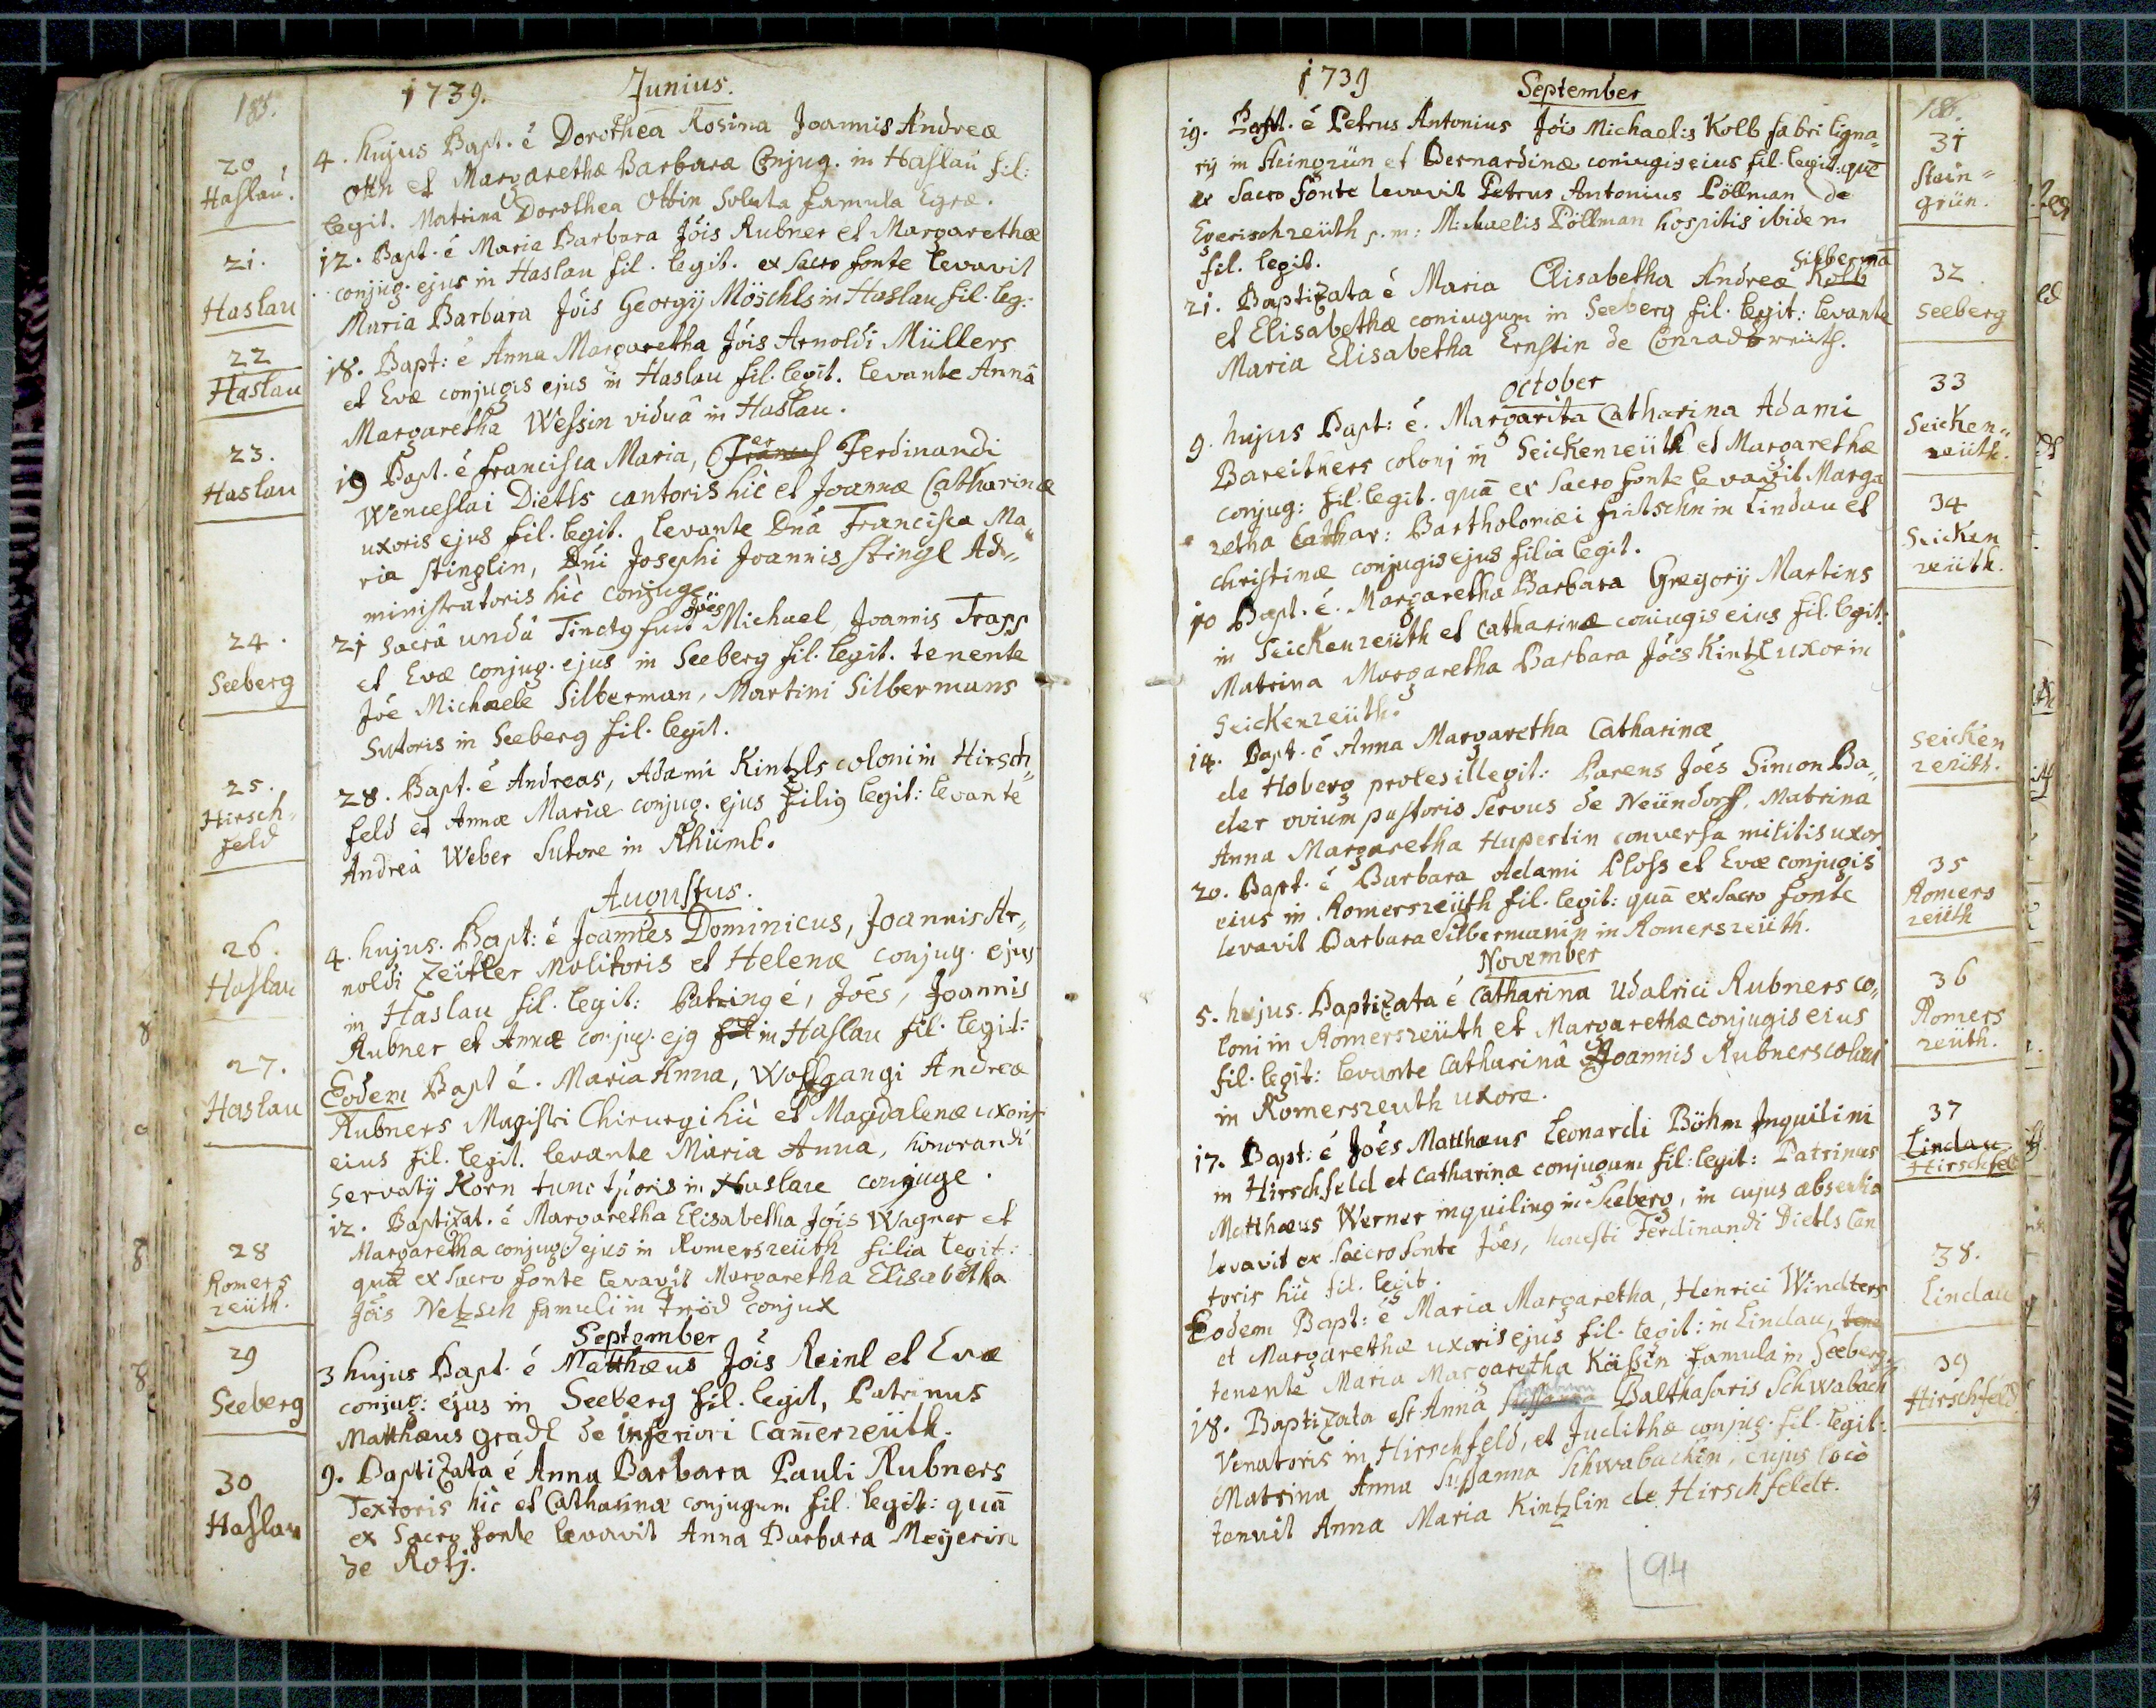 185.
1739. Junius.
20.
Haslau.
4. hujus Bapt. é Dorothea Rosina Joannis Andreæ
Otth et Margarethæ Barbaræ Conjug. in Haslau fil:
legit. Matrina Dorothea Ottin Soluta famula Egræ.
21.
Haslau
12. Bapt. é Maria Barbara Jōis Rubner et Margarethæ
conjug. ejus in Haslau fil. legit. ex sacro fonte levavit
Maria Barbara Jōis Georgij Möschls in Haslau fil. leg:
22
Haslau
18. Bapt: é Anna Margaretha Jōis Arnoldi Müllers
et Evæ conjugis ejus in Haslau fil. legit. levante Annâ
Margaretha Wessin viduâ in Haslau.
23.
Haslau
19 Bapt. é Francisca Maria, Ferdinandi
Wenceslai Dietls cantoris hîc et Joannæ Catharinæ
uxoris ejus fil. legit. levante Dnâ Francisca Ma„
ria Stinglin, Dni Josephi Joannis Stingl Ad„
ministratoris hîc conjuge.
24.
Seeberg
21 sacrâ undâ Tinctg fuit Jōes Michael, Joannis Trapp
et Evæ conjug. ejus in Seeberg fil. legit. tenente
Jōe Michaele Silberman, Martini Silbermans
Sutoris in Seeberg fil. legit.
25.
Hirsch„
feld
28. Bapt. é Andreas, Adami Kintzls coloni in Hirsch„
feld et Annæ Mariæ conjug. ejus filig legit: levante
Andreâ Weber Sutore in Rhümb.
Augustus.
26.
Haslau
4. hujus. Bapt: é Joannes Dominicus, Joannis Ar„
noldi Zeitler Molitoris et Helenæ conjug. ejus
in Haslau fil. legit: Patring é, Jōes, Joannis
Rubner et Annæ conjug. ejg in Haslau fil. legit:
27.
Haslau
Eodem Bapt é. Maria Anna, Wolfgangi Andreæ
Rubners Magistri Chirurgi hîc et Magdalenæ uxoris
eius fil. legit. levante Maria Anna, honorandi
Servatij Korn tunc in Haslau conjuge.
28
Romers
reüth.
12. Baptizat. é Margaretha Elisabetha Jōis Wagner et
Margaretha conjug. ejus in Romersreüth filia legit:
quā ex sacro fonte levavit Margaretha Elisabetha
Jōis Netzsch famuli in conjux
September
29
Seeberg
3 hujus Bapt. é Matthæus Jōis Reinl et Evæ
conjug: ejus in Seeberg fil. legit, Patrinus
Matthæus Gradl de inferiori Cam̄erreüth.
30
Haslau
9. Baptizata é Anna Barbara Pauli Rubners
Textoris hîc et Catharinæ conjugum fil. legit: quā
ex Sacro fonte levavit Anna Barbara Meÿerin
de
1739 September
186.
31
Stein„
grün.
19. Bapt. é Petrus Antonius Jōis Michaelis Kolb fabri ligna„
rij in Steingrün et Bernardinæ coniugis eius fil. legit: quē
ex Sacro fonte levavit Petrus Antonius Pöllman de
Egerischreüth p. m: Michaelis Pöllman hospitis ibidem
fil. legit.
32
Seeberg
21. Baptizata é Maria Elisabetha Andreæ Kolb Silbermā
et Elisabethæ coniugum in Seeberg fil. legit: levante
Maria Elisabetha Ernstin de Conradsreüth.
October
33
Seicken„
reüth.
9. hujus Bapt: é. Margarita Catharina Adami
Bareithers colonj in Seickenreüth et Margarethæ
conjug: fil. legit. quā ex sacro fonte levavit Marga
retha Cathar: Bartholomæi Fritschn in Lindau et
Christinæ conjugis ejus filia legit.
34
Seicken
reüth.
10 Bapt. é. Margaretha Barbara Gregorij Martins
in Seickenreüth et Catharinæ coniugis eius fil. legit.
Matrina Margaretha Barbara Jōis Kintzl uxor in
Seickenreüth.
Seicken
reüth.
14. Bapt. é Anna Margaretha Catharinæ
de Hoberg proles illegit: Parens Jōes Simon Ba„
der ovium pastoris servus de Neündorff, Matrina
Anna Margaretha Hupertin conversa militis uxor
35
Romers
reüth
20. Bapt. é Barbara Adami Ploß et Evæ conjugis
eius in Romersreüth fil. legit: quā ex Sacro fonte
levavit Barbara Silbermanin in Romersreüth.
November
36
Romers
reüth.
5. hujus. Baptizata é Catharina Udalrici Rubners co„
loni in Romersreüth et Margarethæ conjugis eius
fil. legit: levante Catharinâ Joannis Rubners coloni
in Romersreuth uxore.
37
Lindau
Hirschfeld
17. Bapt: é Jōes Matthæus Leonardi Böhm Inquilini
in Hirschfeld et Catharinæ conjugum fil: legit: Patrinus
Matthæus Werner inquiling in Seeberg, in cujus absentia
levavit ex sacro fonte Jōes, honesti Ferdinandi Dietls Can
toris hîc fil. legit.
38.
Lindau
Eodem Bapt: é Maria Margaretha, Henrici Windters
et Margarethæ uxoris ejus fil. legit: in Lindau,
tenente Maria Margaretha Kässin famula in Seeberg.
39
Hirschfeld
18. Baptizata est Anna Susanna Balthasaris Schwabach
Venatoris in Hirschfeld, et Judithæ conjug. fil. legit:
Matrina Anna Susanna Schwabachin, cujus locô
tenuit Anna Maria Kintzlin de Hirschfeldt.
94